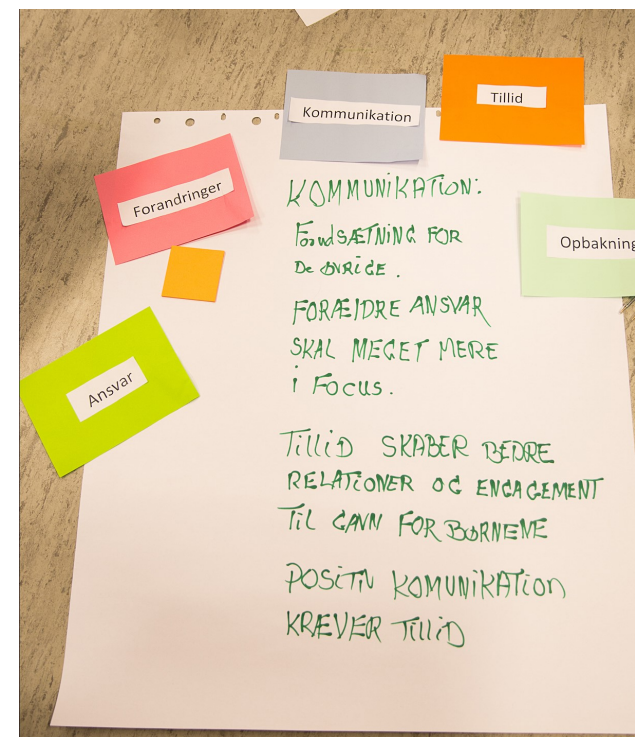 Tillid
Kommunikation
Forandringer
Opbakning
Ansvar
KOMMUNIKATION:
ForudSÆTNING FOR
De ØVRIGE.
FORÆLDRE ANSVAR
SKAL MEGET MERE
i Focus.
Tillid SKABER BEDRE
RELATIONER OG ENGAGEMENT
Til GAVN FOR BØRNENE
POSITIV KOMUNIKATION
KRÆVER Tillid